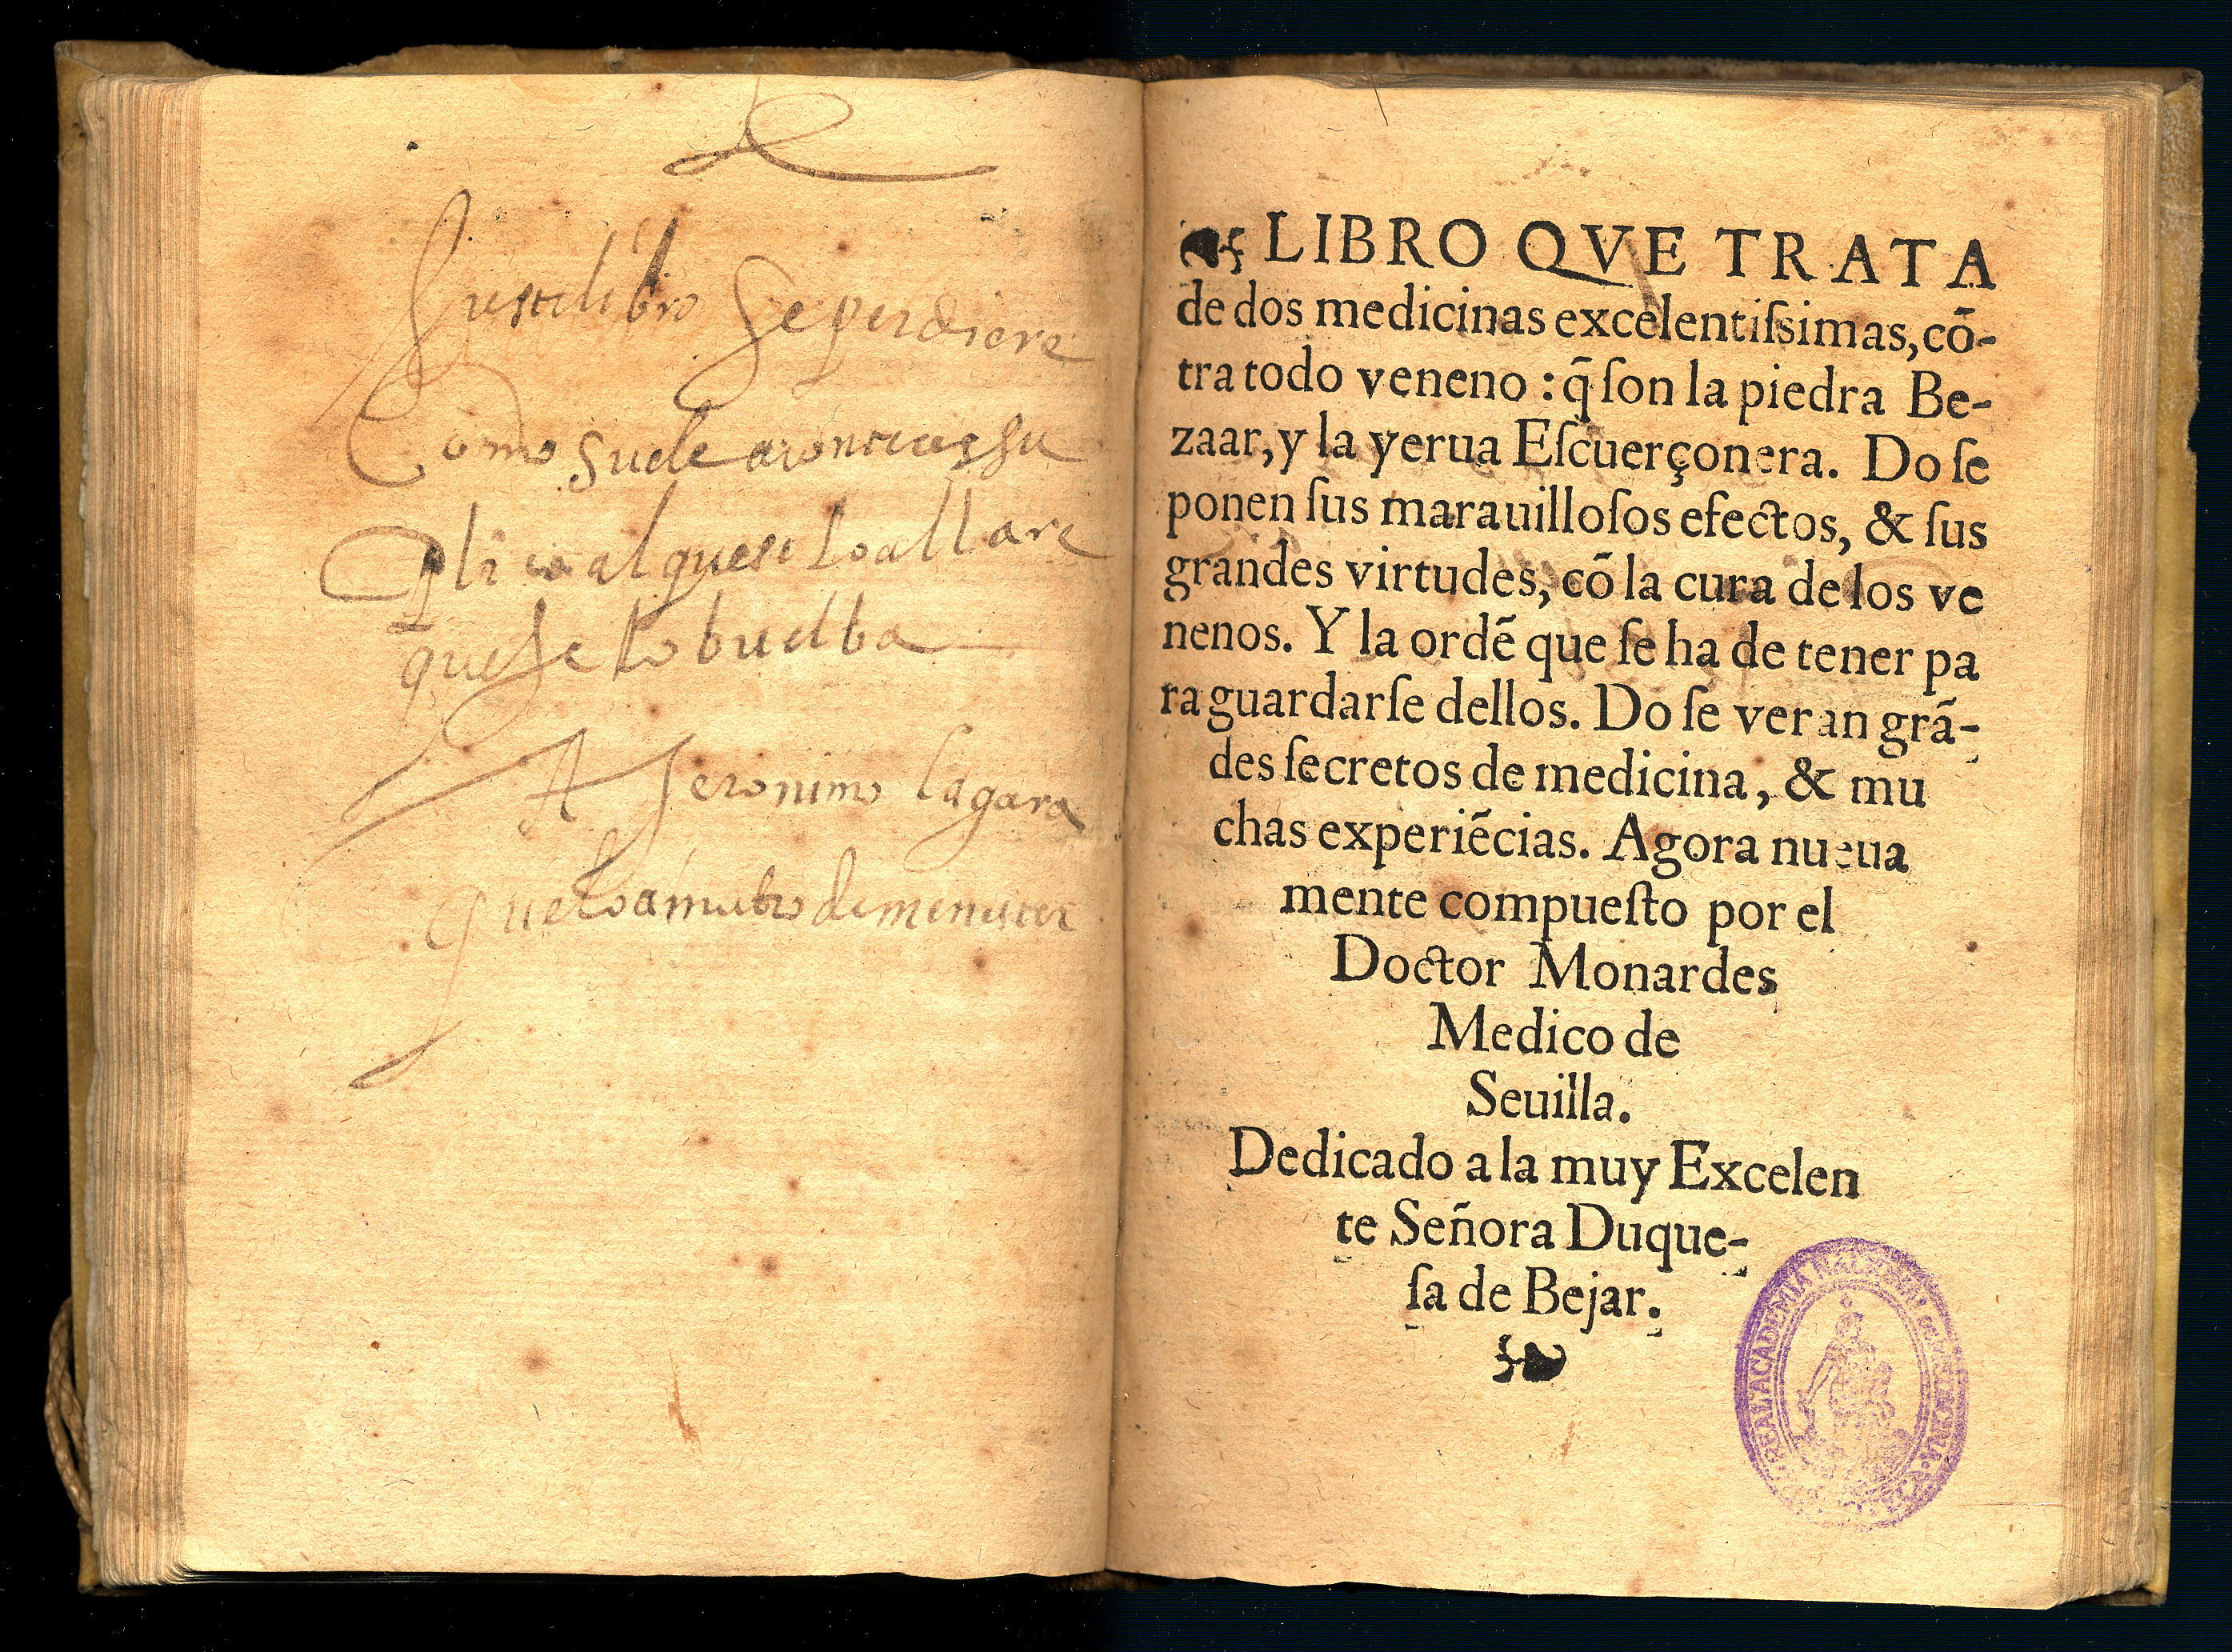 Si este libro se perdiere
Como suele acontecer su
plico al que se lo allare
que se lo buelba
A Jeronimo
que lo a
LIBRO QVE TRATA
de dos medicinas excelentiſsimas, cō-
tra todo veneno : q̄ ſon la piedra Be-
zaar, y la yerua Eſcuerçonera. Do ſe
ponen ſus marauilloſos efectos, & ſus
grandes virtudes, cō la cura de los ve
nenos. Y la ordē que ſe ha de tener pa
ra guardarſe dellos. Do ſe veran grā-
des ſecretos de medicina, & mu
chas experiēcias. Agora nueua
mente compueſto por el
Doctor Monardes
Medico de
Seuilla.
Dedicado a la muy Excelen
te Señora Duque-
ſa de Bejar.
REAL ACADEMIA NACIONAL DE MEDICINA